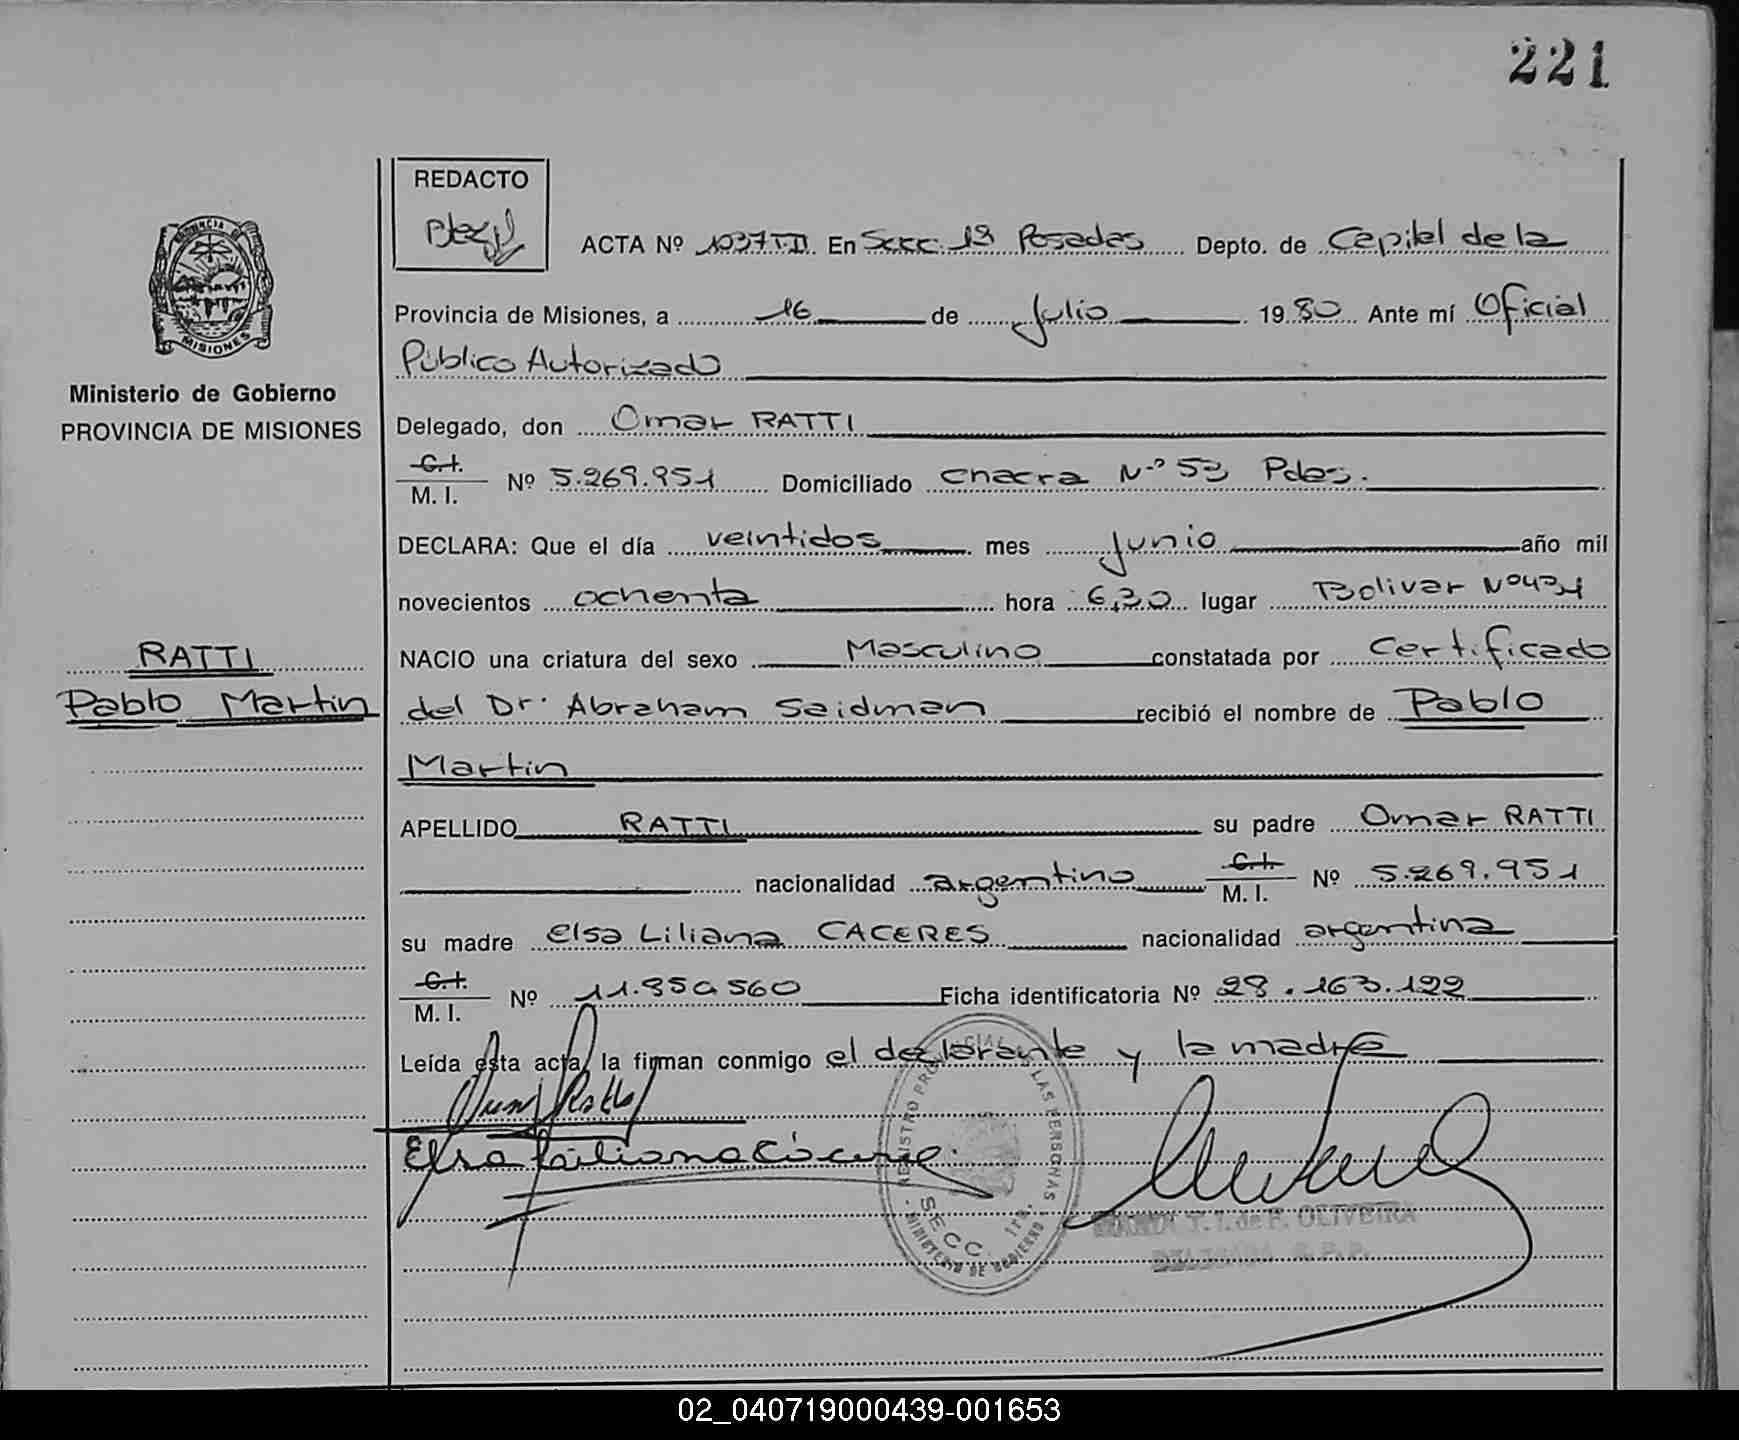 221
REDACTO
ACTA Nº 1037 T.II. En Secc. 1ª Posadas Depto. de Capital de la
Provincia de Misiones, a 16 de Julio 1980 Ante mí Oficial
Público Autorizado
Ministerio de Gobierno
PROVINCIA DE MISIONES
Delegado, don Omar RATTI
C.I.
M. I. Nº 5.269.951 Domiciliado Chacra Nº 53 Pdas.
DECLARA: Que el día veintidos mes Junio año mil
novecientos ochenta hora 6,30 lugar Bolivar Nº 431
RATTI
Pablo Martin
NACIO una criatura del sexo Masculino constatada por Certificado
del Dr. Abraham Seidman recibió el nombre de Pablo
Martin
APELLIDO RATTI su padre Omar RATTI
nacionalidad argentino C.I. M. I. Nº 5.269.951
su madre Elsa Liliana CACERES nacionalidad argentina
C.I.
M. I. Nº Ficha identificatoria Nº 28.163.122
Leída esta acta, la firman conmigo el declarante y la madre
Elsa Liliana Cáceres
REGISTRO PROVINCIAL DE LAS PERSONAS
SECC. 1ra.
MINISTERIO DE GOBIERNO
T. I. de F. OLIVEIRA
DELEGADA R. P. P.
PROVINCIA DE MISIONES
02_040719000439-001653